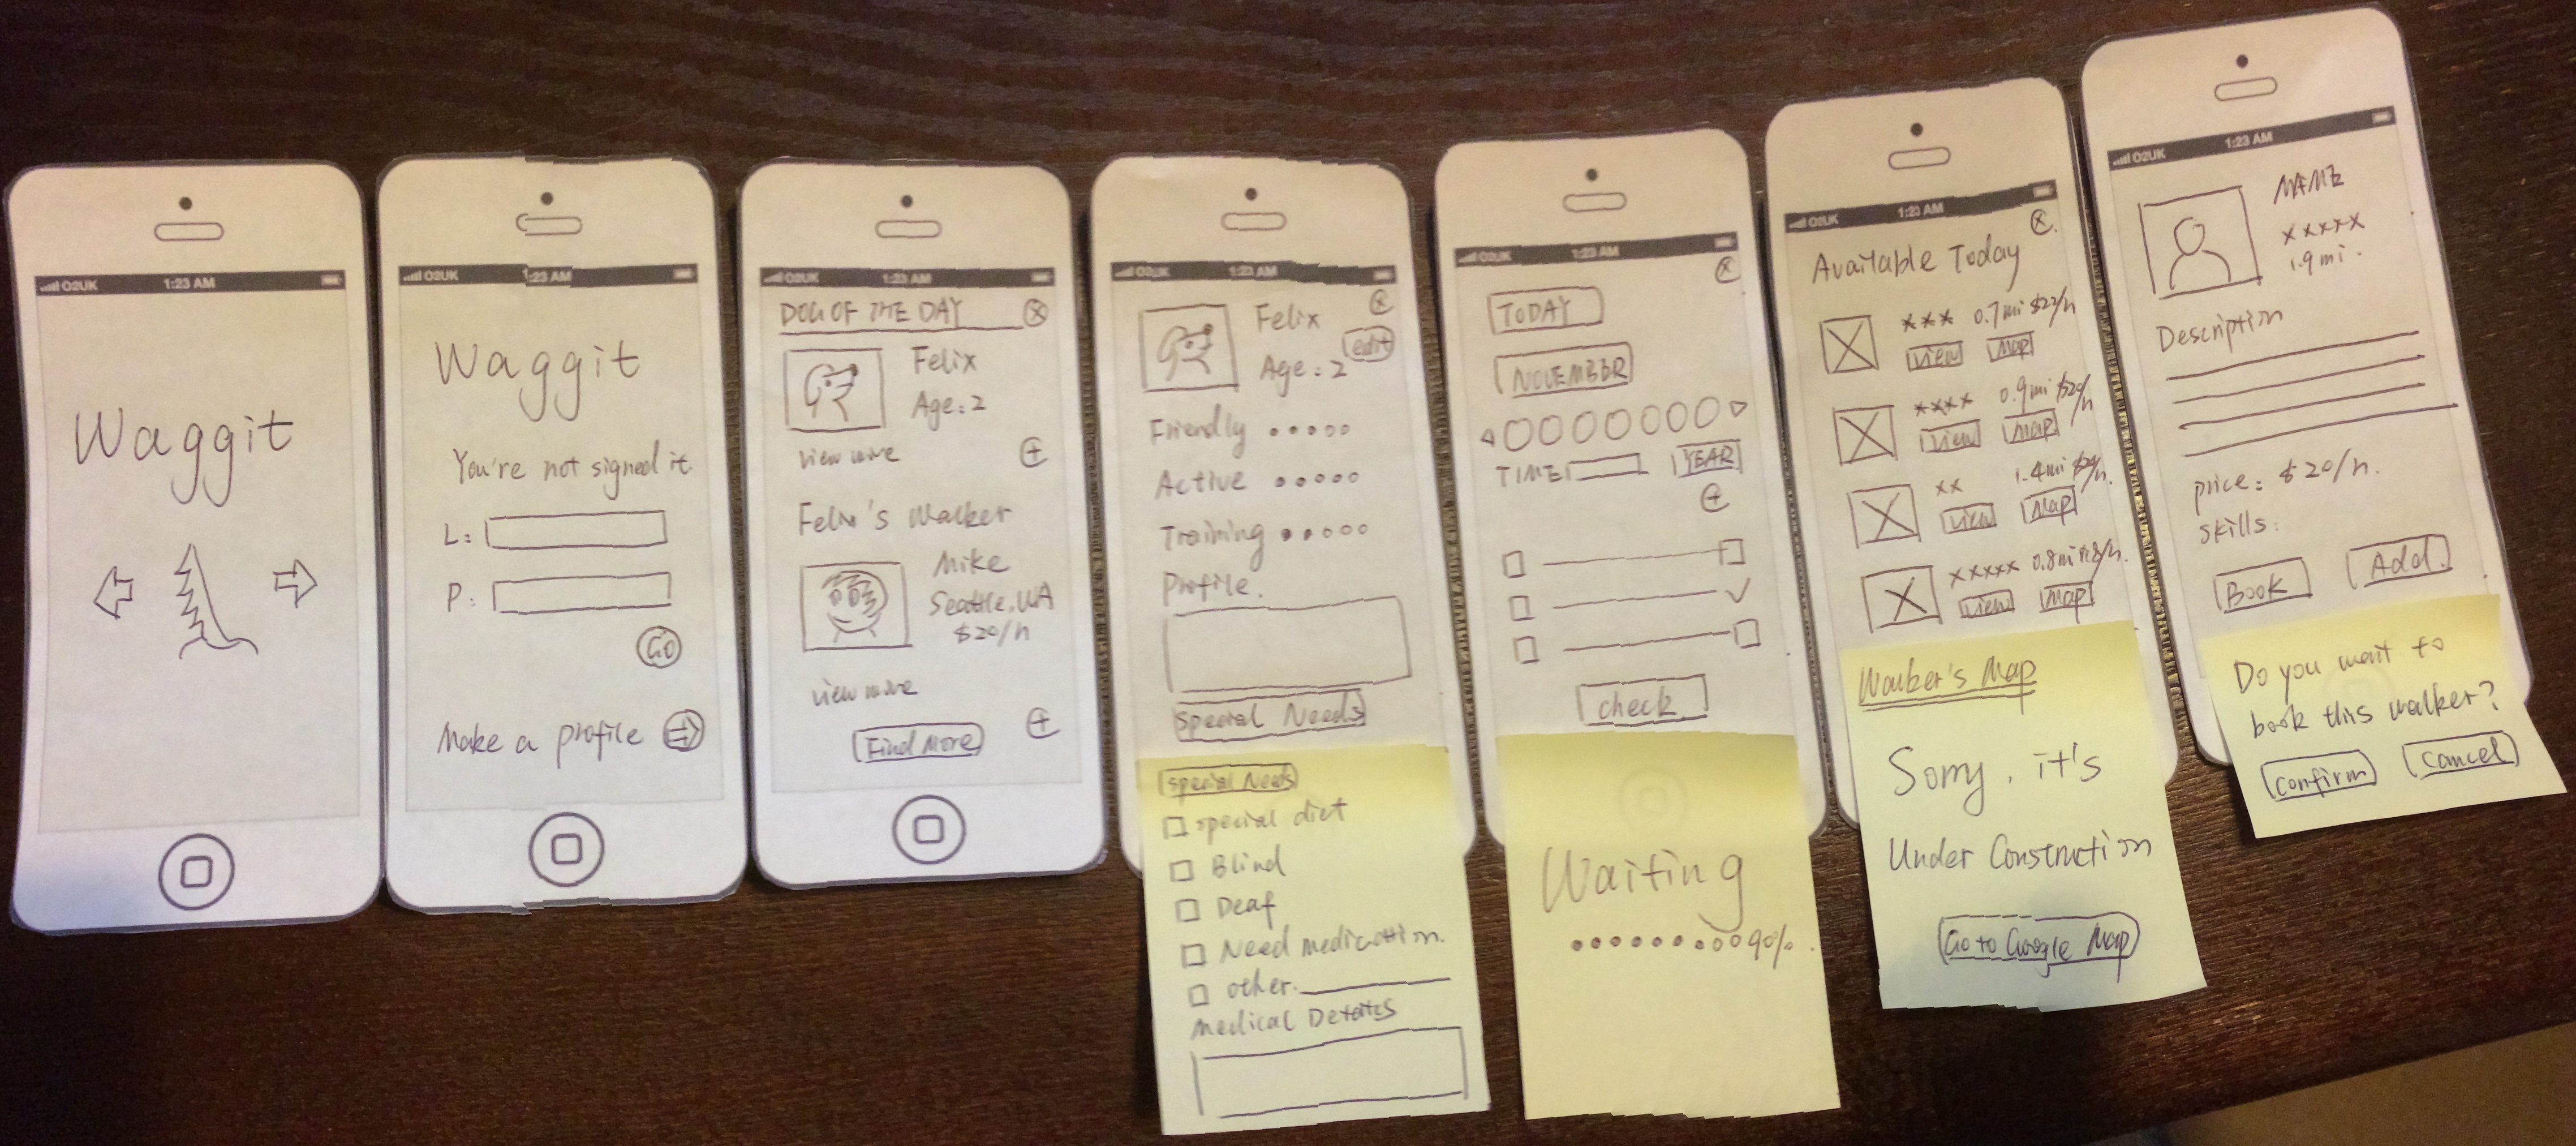 O2UK 1:23 AM
Waggit
O2UK 1:23 AM
Waggit
You're not signed it.
L:
P:
Go
Make a profile
O2UK 1:23 AM
DOG OF THE DAY
Felix
Age: 2
view more
Felix's Walker
Mike
Seattle, WA
$20/h
view more
Find More
O2UK 1:23 AM
Felix
edit
Age: 2
Friendly
Active
Training
Profile.
Special Needs
Special Needs
special diet
Blind
Deaf
Need medication.
other.
Medical Details
O2UK 1:23 AM
TODAY
NOVEMBER
TIME YEAR
check
Waiting
90%.
O2UK 1:23 AM
Available Today
xxx 0.7mi $22/h
View Map
xxxx 0.9mi $20/h
View Map
xx 1.4mi
View Map
xxxxx 0.8mi
View Map
Walker's Map
Sorry, it's
Under Construction
Go to Google Map
O2UK 1:23 AM
NAME
xxxxx
1.9mi.
Description
price: $20/h.
skills:
Book Add.
Do you wait to
book this walker?
Confirm Cancel